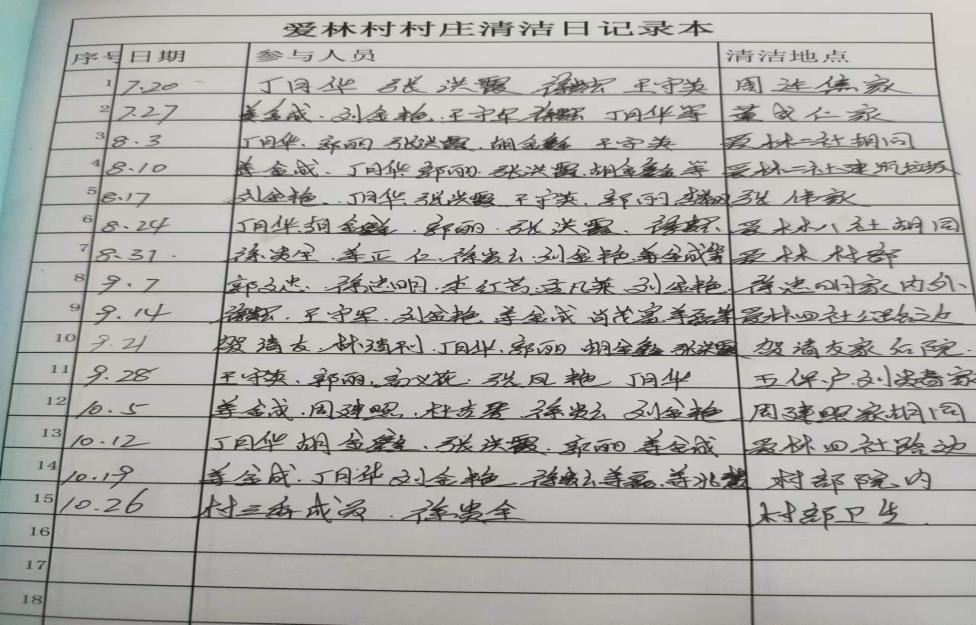 爱林村村庄清洁日记录本
序号 日期 参与人员 清洁地点
1 7.20 丁月华 张洪霞 王守英 周 家
2 7.27 姜金成 刘金艳 丁月华等 董成仁家
3 8.3 丁月华 郭丽 张洪霞 王守英 爱林二社胡同
4 8.10 姜金成 丁月华 郭丽 张洪霞 等 爱林二社建筑垃圾
5 8.17 刘金艳 丁月华 张洪霞 王守英 郭丽 张 家
6 8.24 丁月华 郭丽 张洪霞 爱林八社胡同
7 8.31 徐贵全 姜正仁 徐贵云 刘金艳 姜金成等 爱林村部
8 9.7 郭文忠 徐志明 李红岩 孟凡英 刘金艳 徐志明家内外
9 9.14 王守军 刘金艳 姜金成 爱林四社 边
10 9.21 贺清友 丁月华 郭丽 张洪霞 贺清友家后院
11 9.28 王守英 郭丽 高义花 张凤艳 丁月华 五保户刘贵 家
12 10.5 姜金成 周建照 徐贵云 刘金艳 周建照家胡同
13 10.12 丁月华 张洪霞 郭丽 姜金成 爱林四社路边
14 10.19 姜金成 丁月华 刘金艳 徐贵云 姜磊 村部院内
15 10.26 村三委成员 徐贵全 村部卫生
16
17
18